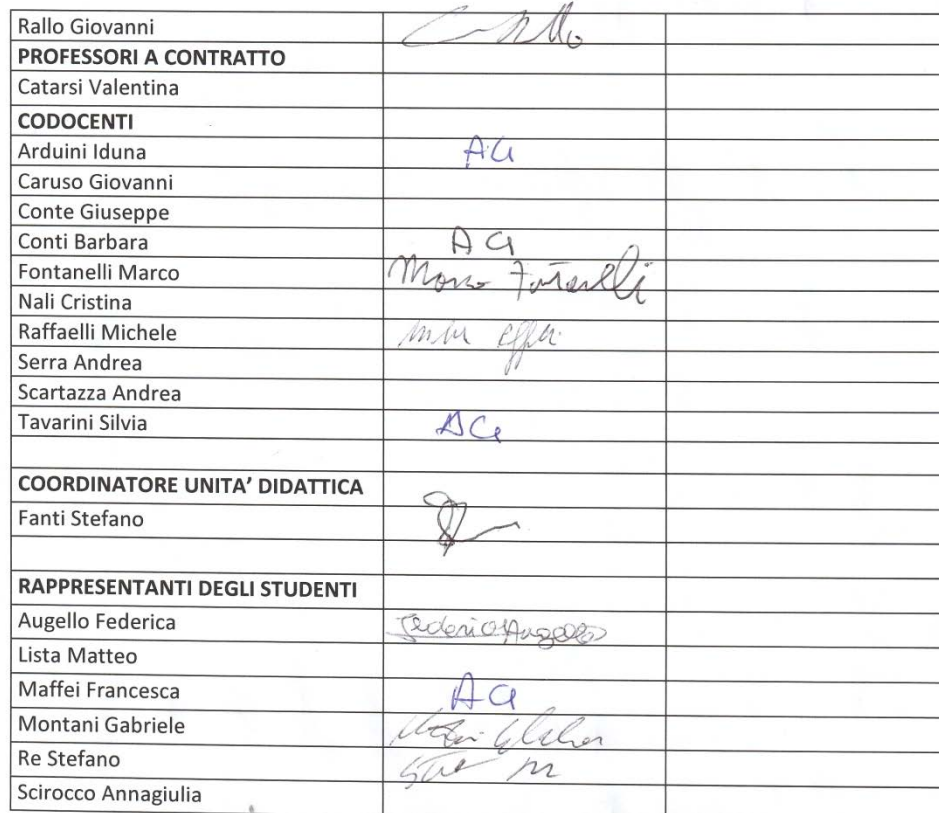 Rallo Giovanni
PROFESSORI A CONTRATTO
Catarsi Valentina
CODOCENTI
Arduini Iduna AG
Caruso Giovanni
Conte Giuseppe
Conti Barbara AG
Fontanelli Marco Marco Fontanelli
Nali Cristina
Raffaelli Michele
Serra Andrea
Scartazza Andrea
Tavarini Silvia AG
COORDINATORE UNITA’ DIDATTICA
Fanti Stefano
RAPPRESENTANTI DEGLI STUDENTI
Augello Federica Federica Augello
Lista Matteo
Maffei Francesca AG
Montani Gabriele
Re Stefano
Scirocco Annagiulia